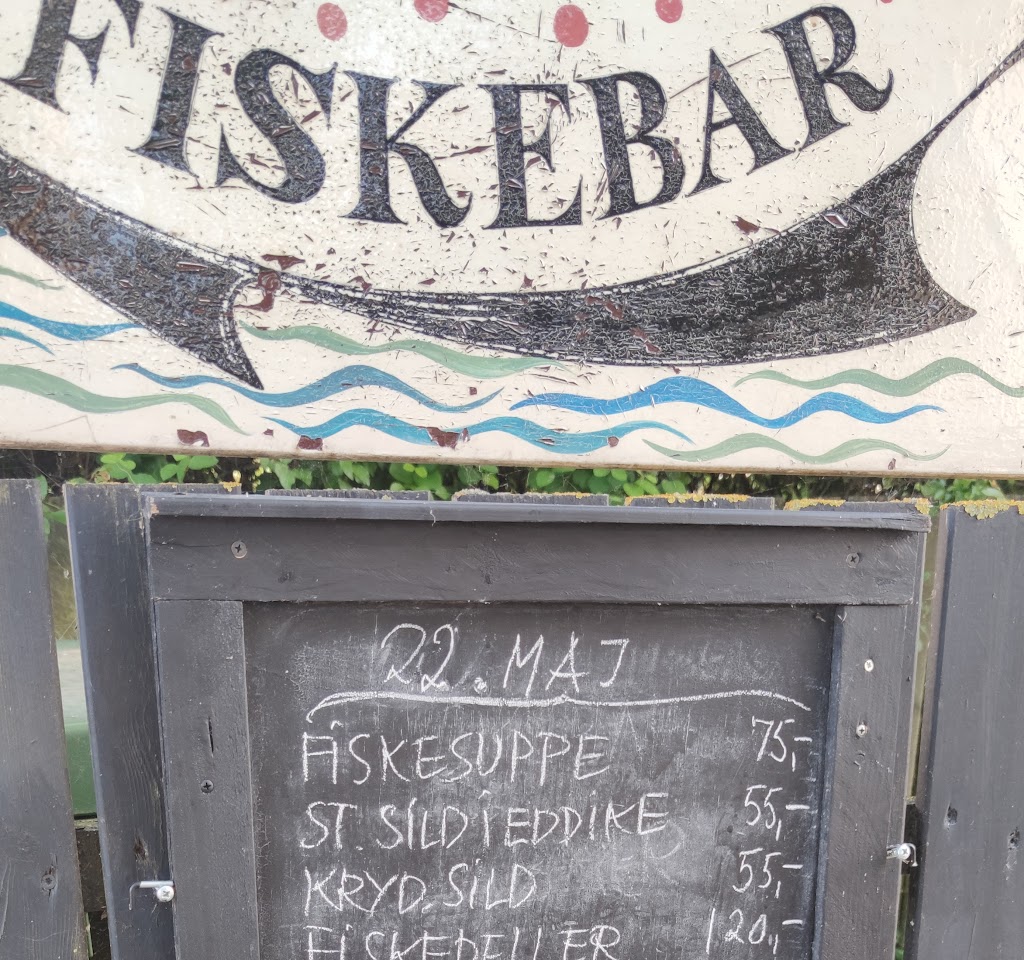 FISKEBAR
22. MAJ
FISKESUPPE 75,-
ST. SILD I EDDIKE 55,-
KRYD. SILD 55,-
FISKEDELLER 120,-